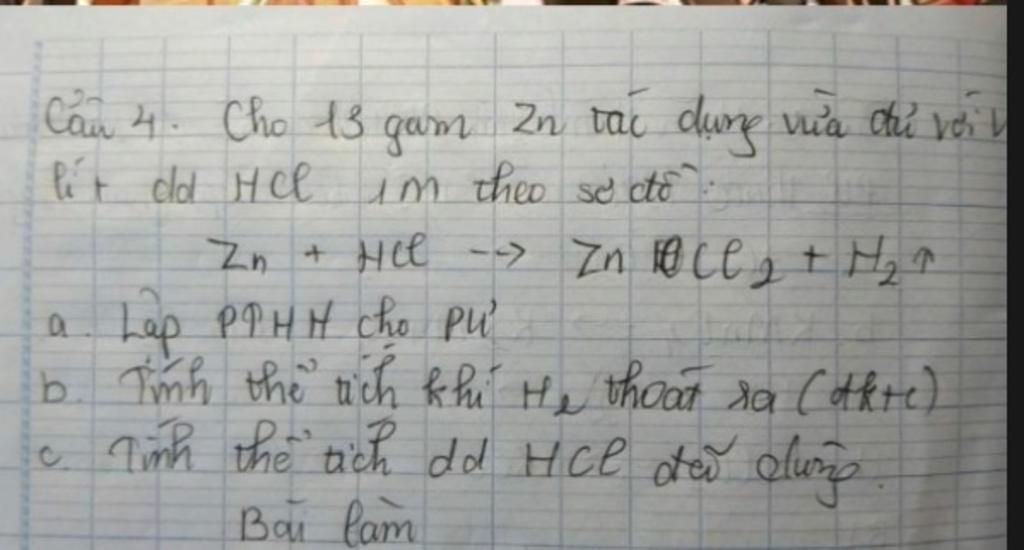 Câu 4. Cho 13 gam Zn tác dụng vừa đủ với V
lít dd HCl 1M theo sơ đồ:
Zn + HCl --> Zn Cl2 + H2↑
a. Lập PTHH cho PƯ
b. Tính thể tích khí H2 thoát ra (đktc)
c. Tính thể tích dd HCl đã dùng.
Bài làm